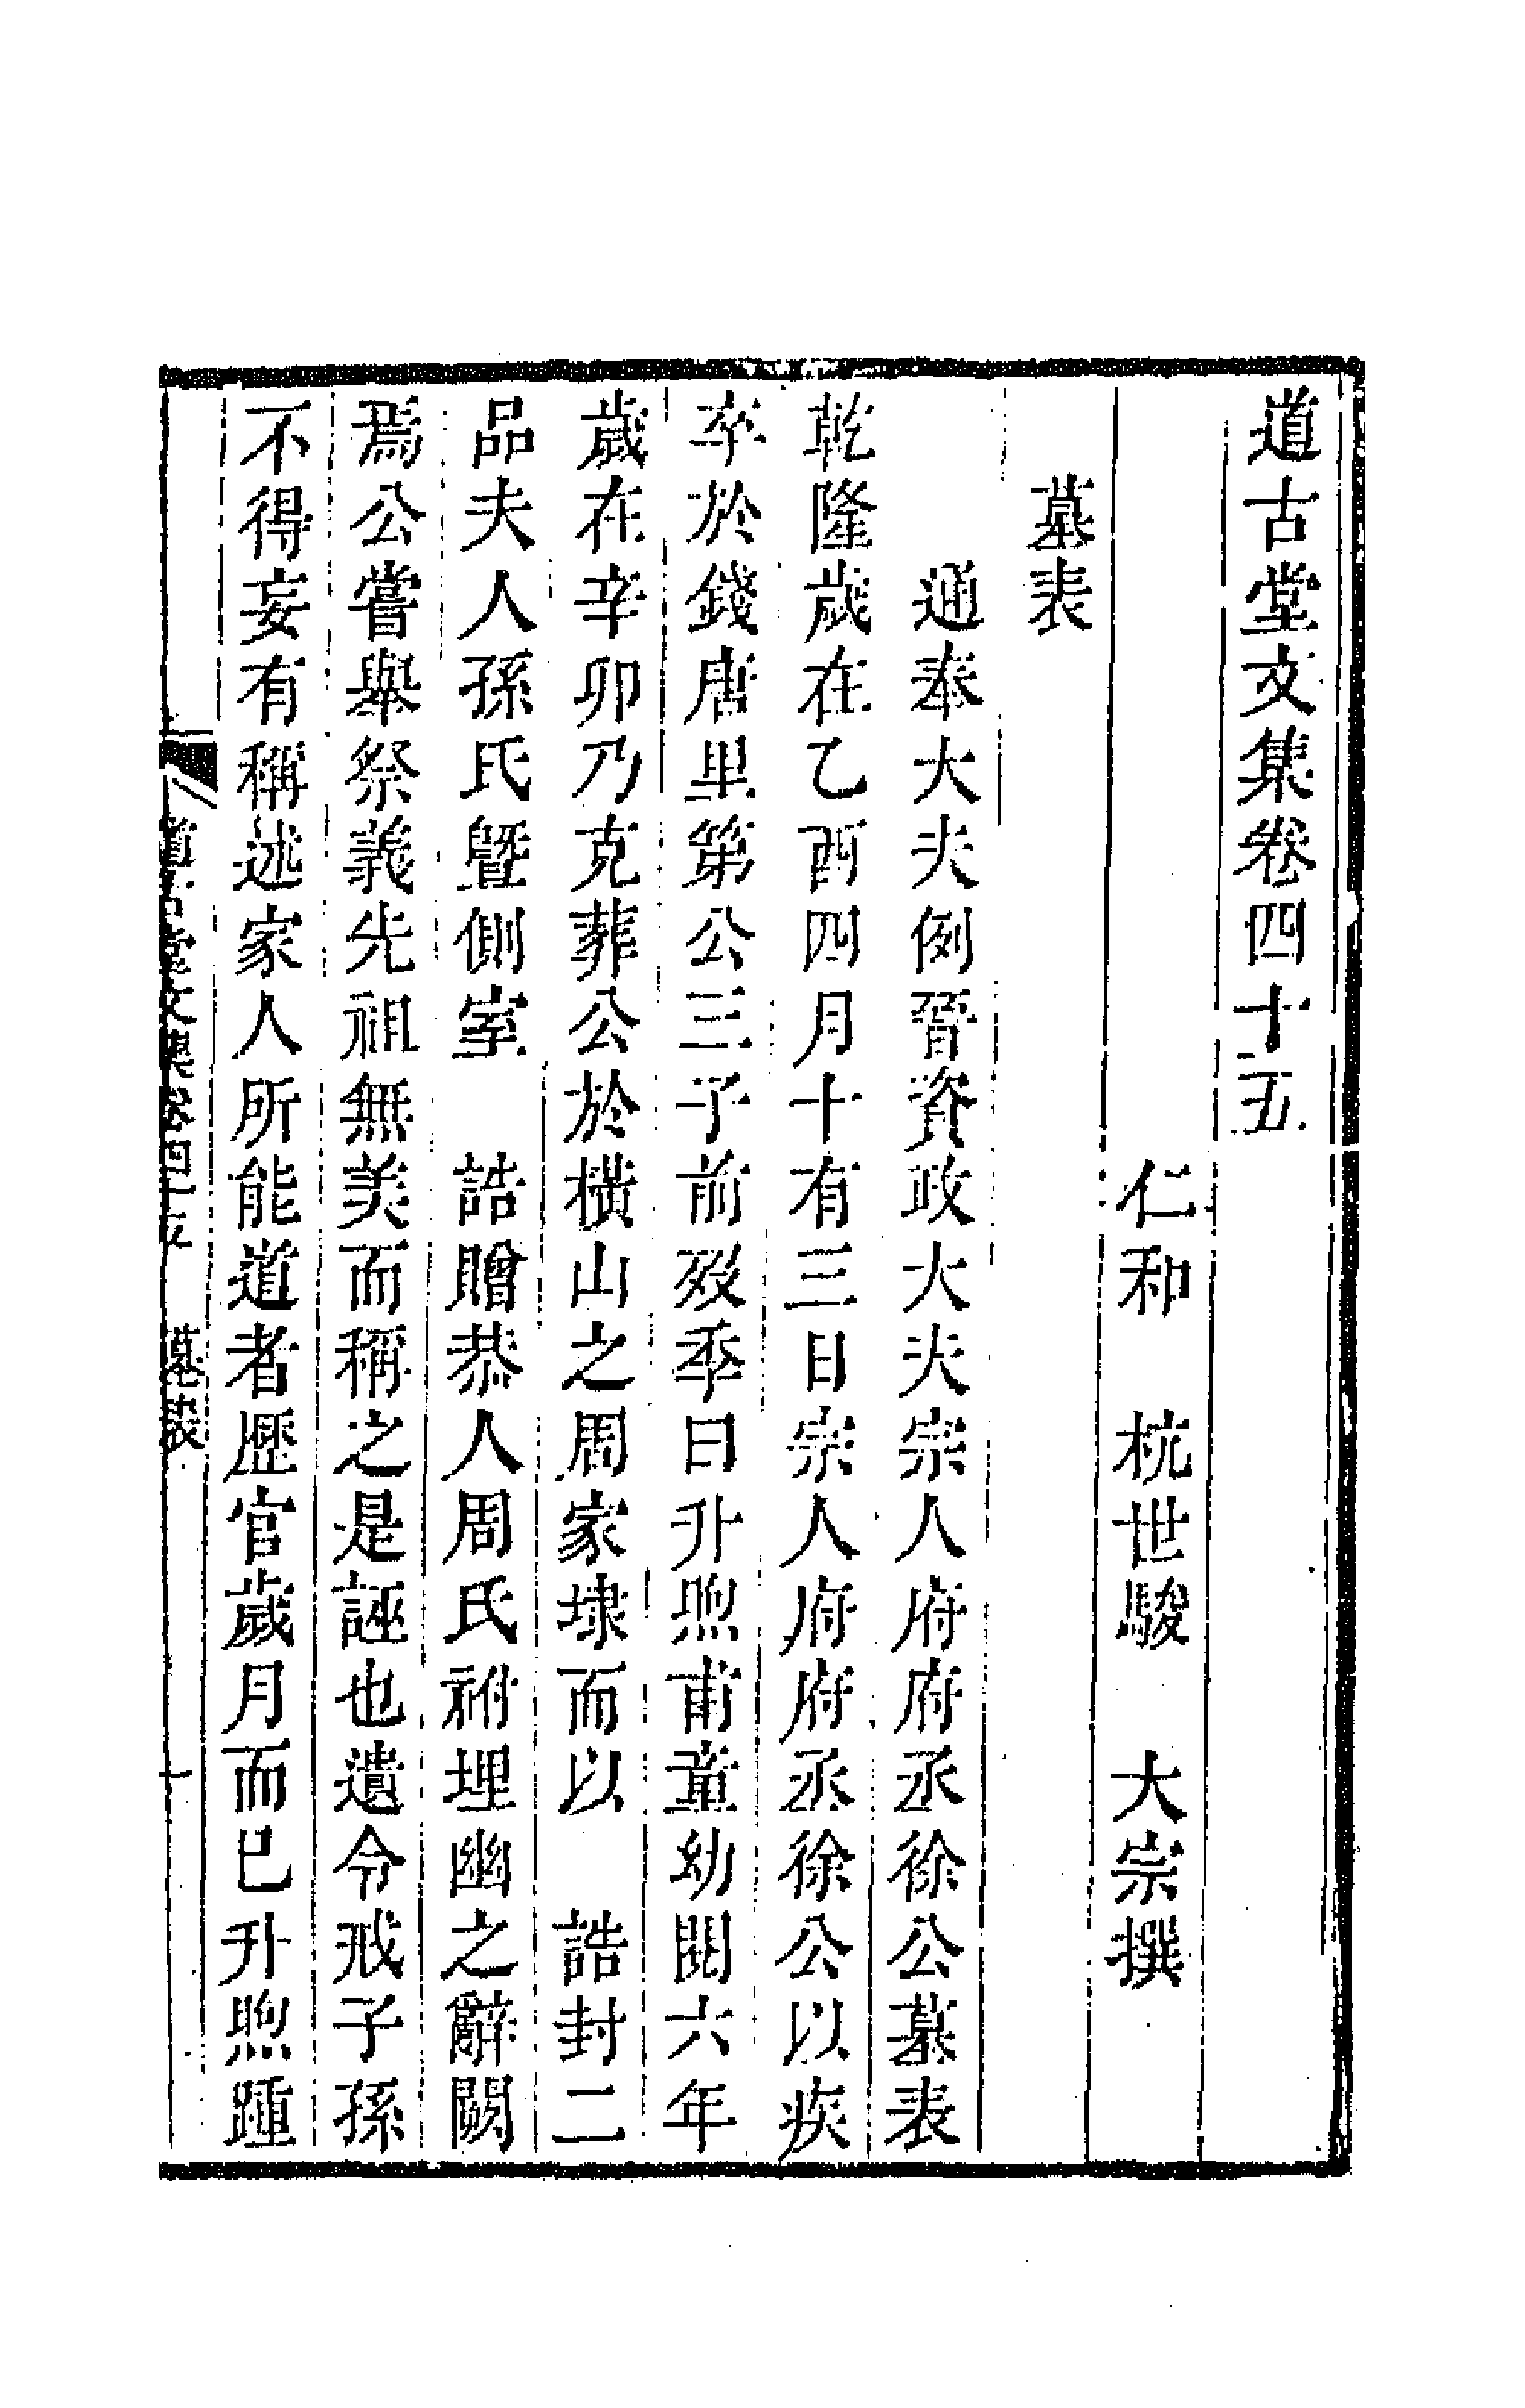 道古堂文集卷四十五
仁和　杭世駿　大宗撰
墓表
通奉大夫例晉資政大夫宗人府府丞徐公墓表
乾隆歲在乙酉四月十有三日宗人府府丞徐公以疾
卒於錢唐里第公三子前歿季曰升煦甫童幼閱六年
歲在辛卯乃克葬公於橫山之周家埭而以　誥封二
品夫人孫氏暨側室　誥贈恭人周氏祔埋幽之辭闕
焉公嘗舉祭義先祖無美而稱之是誣也遺令戒子孫
不得妄有稱述家人所能道者歷官歲月而已升煦踵
道古堂文集卷四十五　墓表　一